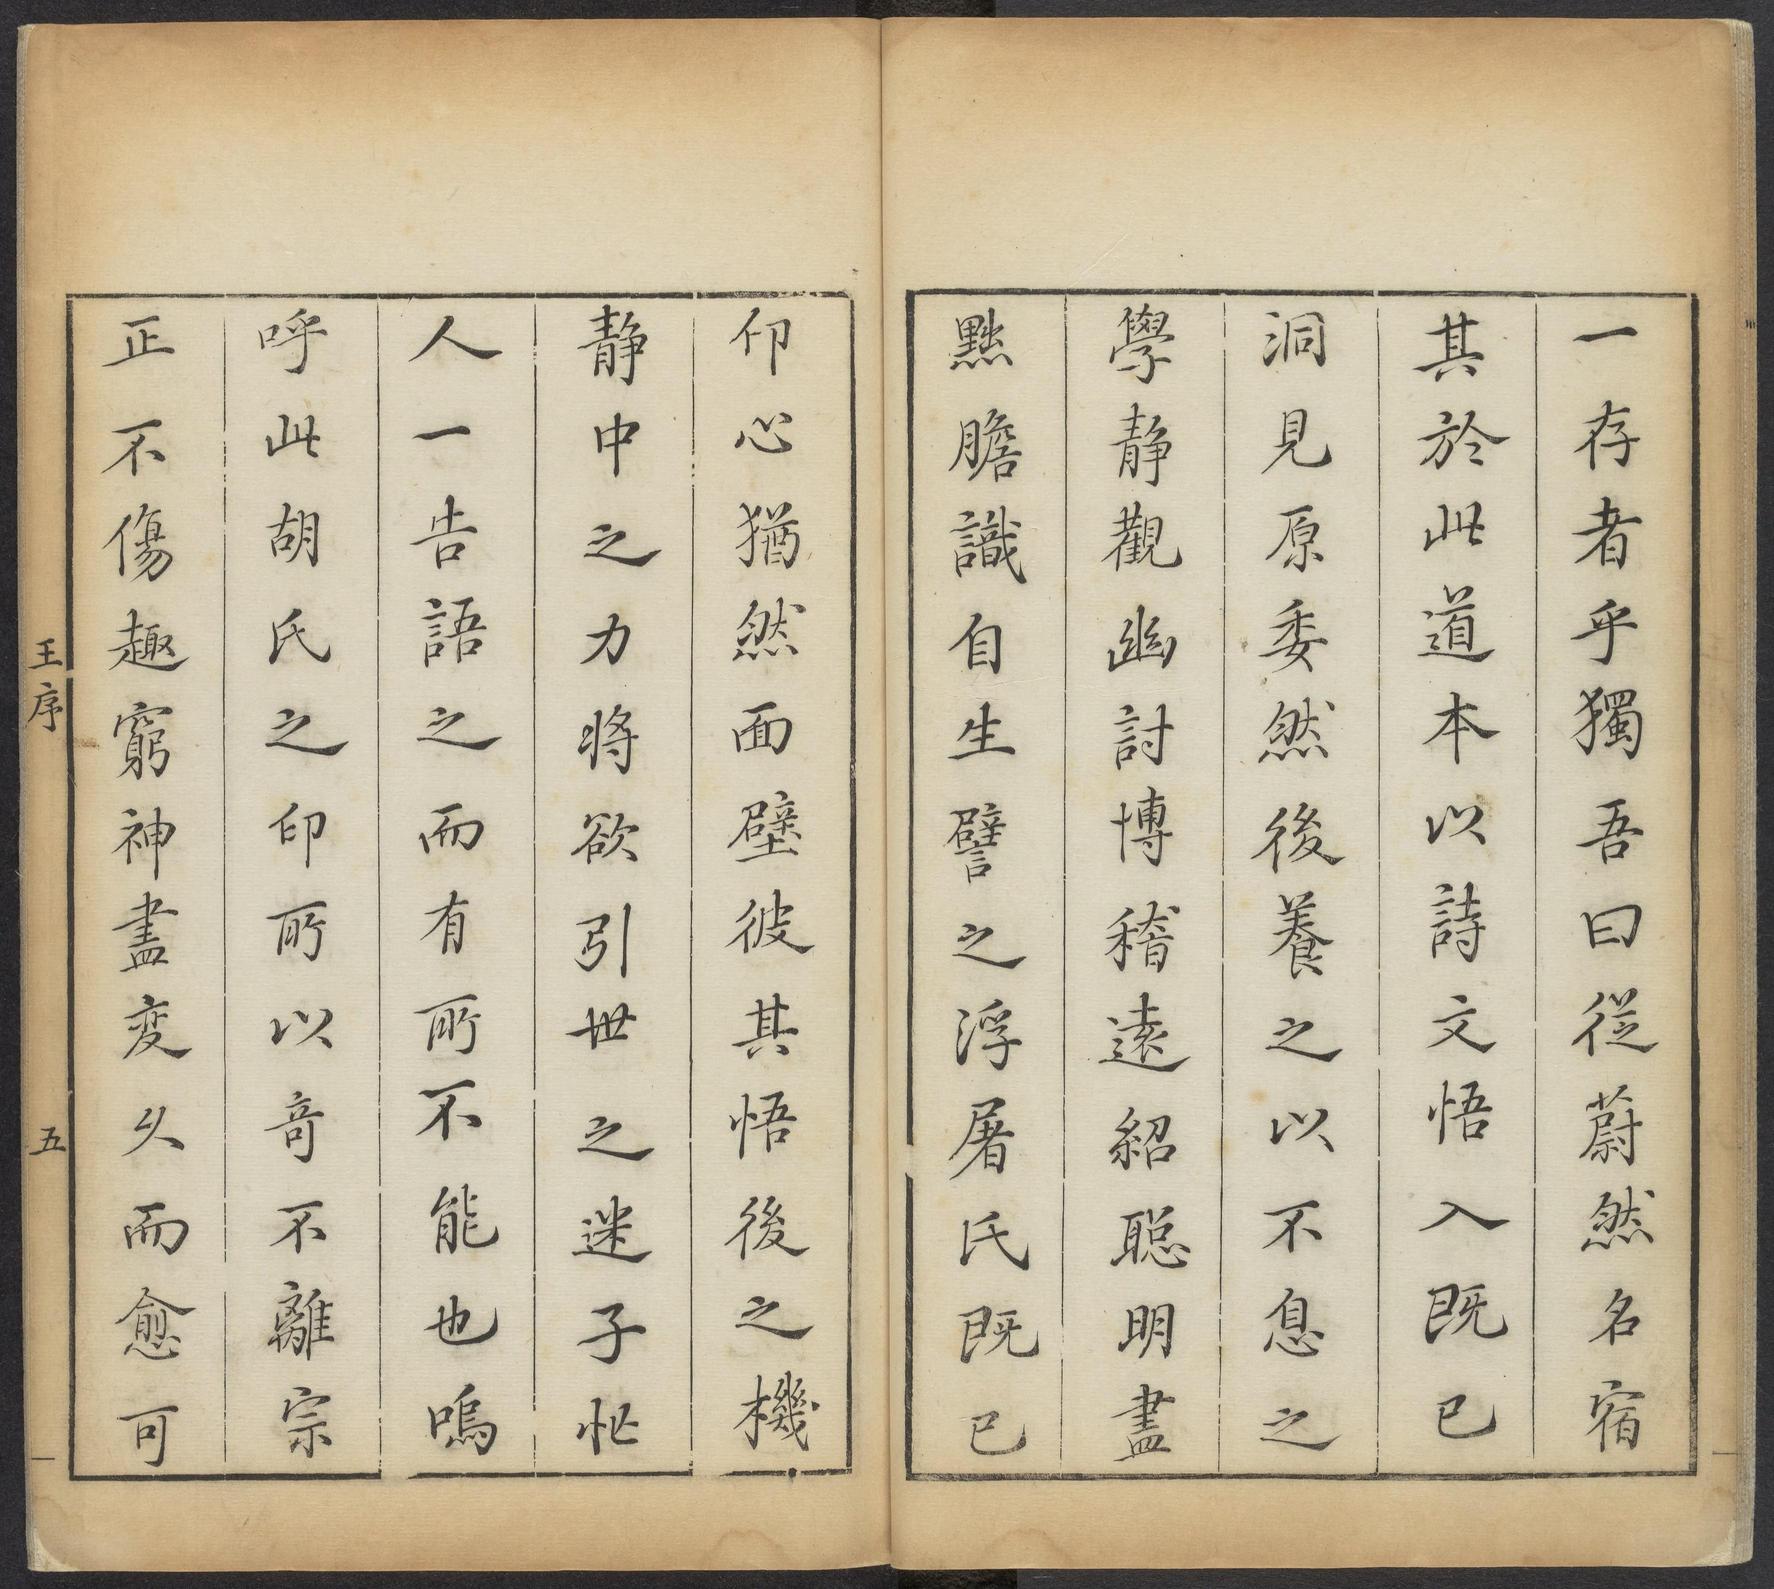 一存者乎獨吾曰從蔚然名宿
其於此道本以詩文悟入既已
洞見原委然後養之以不息之
學静觀幽討博稽遠紹聡明盡
黜膽識自生譬之浮屠氏既已
印心猶然面壁彼其悟後之機
静中之力将欲引世之迷子忙
人一告語之而有所不能也嗚
呼此胡氏之印所以奇不離宗
正不傷趣窮神盡変久而愈可
王序
五